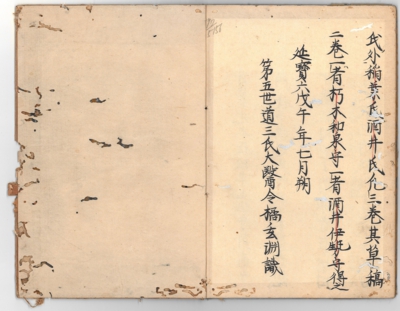 氏外稲葉氏酒井氏凡三巻其草稿
二巻一者朽木和泉守一者酒井伊賀守得之
延寶六戊午年七月朔
第五世道三氏大醫令橘玄淵識